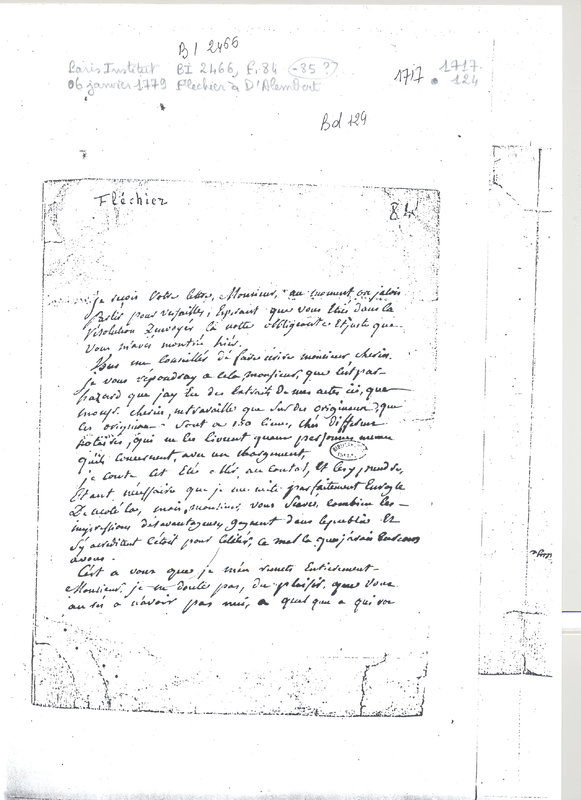 BI 2466
Paris Institut BI 2466, f. 84 (-85?)
06 janvier 1779 Flechier à D'Alembert
1717
1717.
124
Bd 129
Fléchier
84
je reçois votre lettre, Monsieur, au moment ou jalois
partir pour versailles, Esperant que vous Etiés dans la
résolution Denvoyer la notte obligeante Et juste que
vous m'avés montrée hier.
Vous me conseillés de faire écrire monsieur cherin.
je vous répondray a cela monsieur, que c'est par
hazard que jay Eu des Extrait de mes actes ici, que
mons. cherin, ne travaille que sur des originaux, que
les originaux sont a 150 lieues, chés Differens
notaires, qui ne les livrent quaux personnes meme
qu'ils concernent, avec un chargement.
je conte cet Eté aller, au contat, Et les y prendre,
Etant necessaire que je me mele parfaitement En regle
De cela, mais, monsieur, vous Scavés, combien les
impressions desavantageuses, gagnent dans le public Et
s'y acreditent c'étoit pour le mal que javais recours
a vous.
C'est a vous que je m'en remets Entierement
Monsieur, je ne doute pas, du plaisir, que vous
aurés a n'avoir pas nui, a quelqu'un qui ne